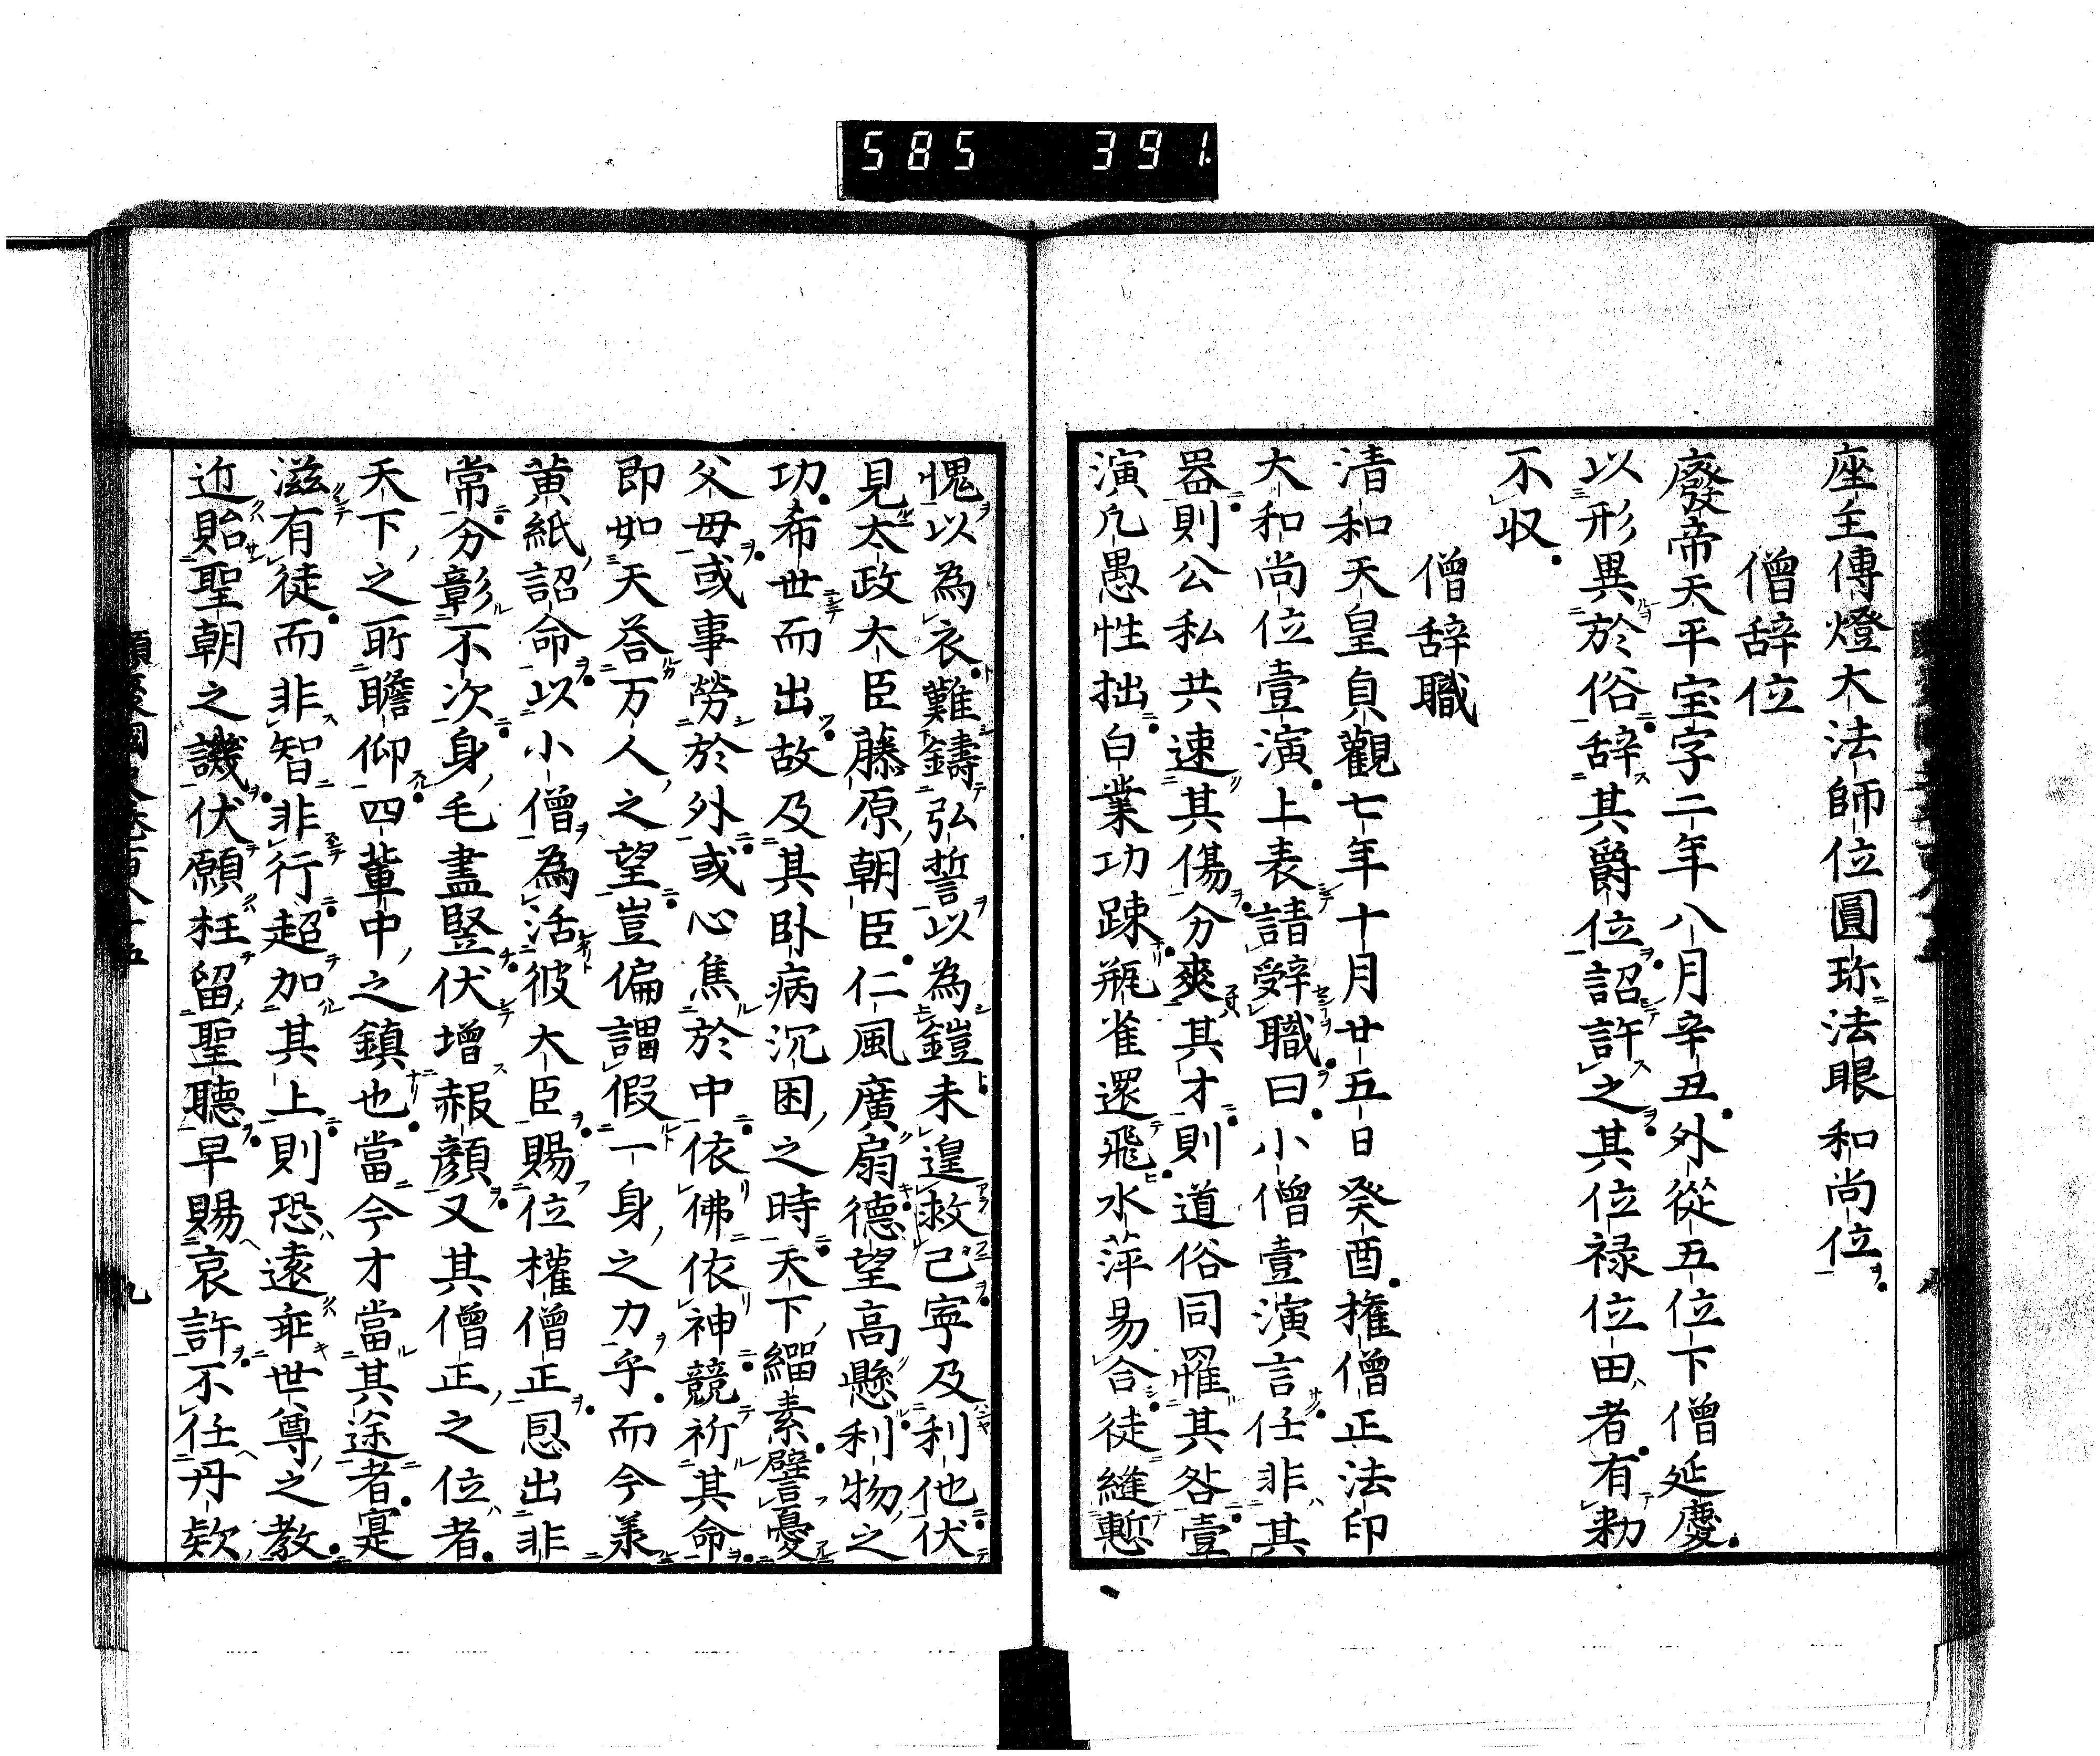 585 391
座主傳燈大法師位圓珎法眼和尚位
僧辞位
廢帝天平宝字二年八月辛丑外從五位下僧延慶
以形異於俗辞其爵位詔許之其位禄位田者有勅
不収
僧辞職
清和天皇貞觀七年十月廿五日癸酉権僧正法印
大和尚位壹演上表請辤職曰小僧壹演言任非其
器則公私共速其傷分爽其才則道俗同罹其咎壹
演凢愚性拙白業功踈瓶雀還飛水萍易合徒縫慙
愧以為衣難鑄弘誓以為鎧未遑救己寧及利他伏
見太政大臣藤原朝臣仁風廣扇德望高懸利物之
功希世而出故及其卧病沉困之時天下緇素譬憂
父母或事勞於外或心焦於中依佛依神競祈其命
即如天荅万人之望豈偏謂假一身之力乎而今羕
黄紙詔命以小僧為活彼大臣賜位權僧正恩出非
常分彰不次身毛盡竪伏增赧顔又其僧正之位者
天下之所瞻仰四輩中之鎮也當今才當其途者寔
滋有徒而非智非行超加其上則恐遠乖世尊之教
近貽聖朝之譏伏願枉留聖聽早賜哀許不任丹欵
類聚國史卷百八十五
九